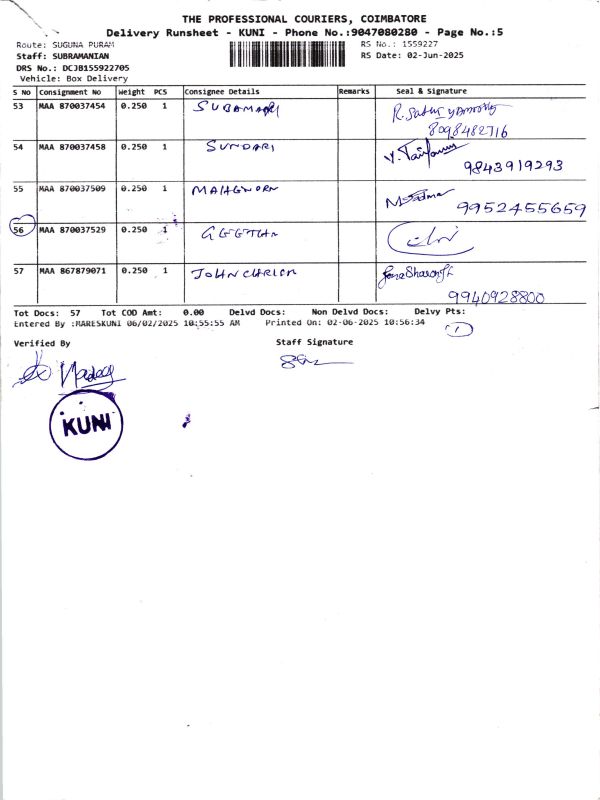 THE PROFESSIONAL COURIERS, COIMBATORE
Delivery Runsheet - KUNI - Phone No.:9047080280 - Page No.:5
Route: SUGUNA PURAM
RS No.: 1559227
Staff: SUBRAMANIAN
RS Date: 02-Jun-2025
DRS No.: DCJB155922705
Vehicle: Box Delivery
S No Consignment No Weight PCS Consignee Details Remarks Seal & Signature
53 MAA 870037454 0.250 1
8098482716
54 MAA 870037458 0.250 1 SUNDARI
9843919293
55 MAA 870037509 0.250 1
9952455659
56 MAA 870037529 0.250 1
57 MAA 867879071 0.250 1
9940928800
Tot Docs: 57 Tot COD Amt: 0.00 Delvd Docs: Non Delvd Docs: Delvy Pts:
Entered By :MARESKUNI 06/02/2025 10:55:55 AM Printed On: 02-06-2025 10:56:34
1
Verified By
Staff Signature
KUNI